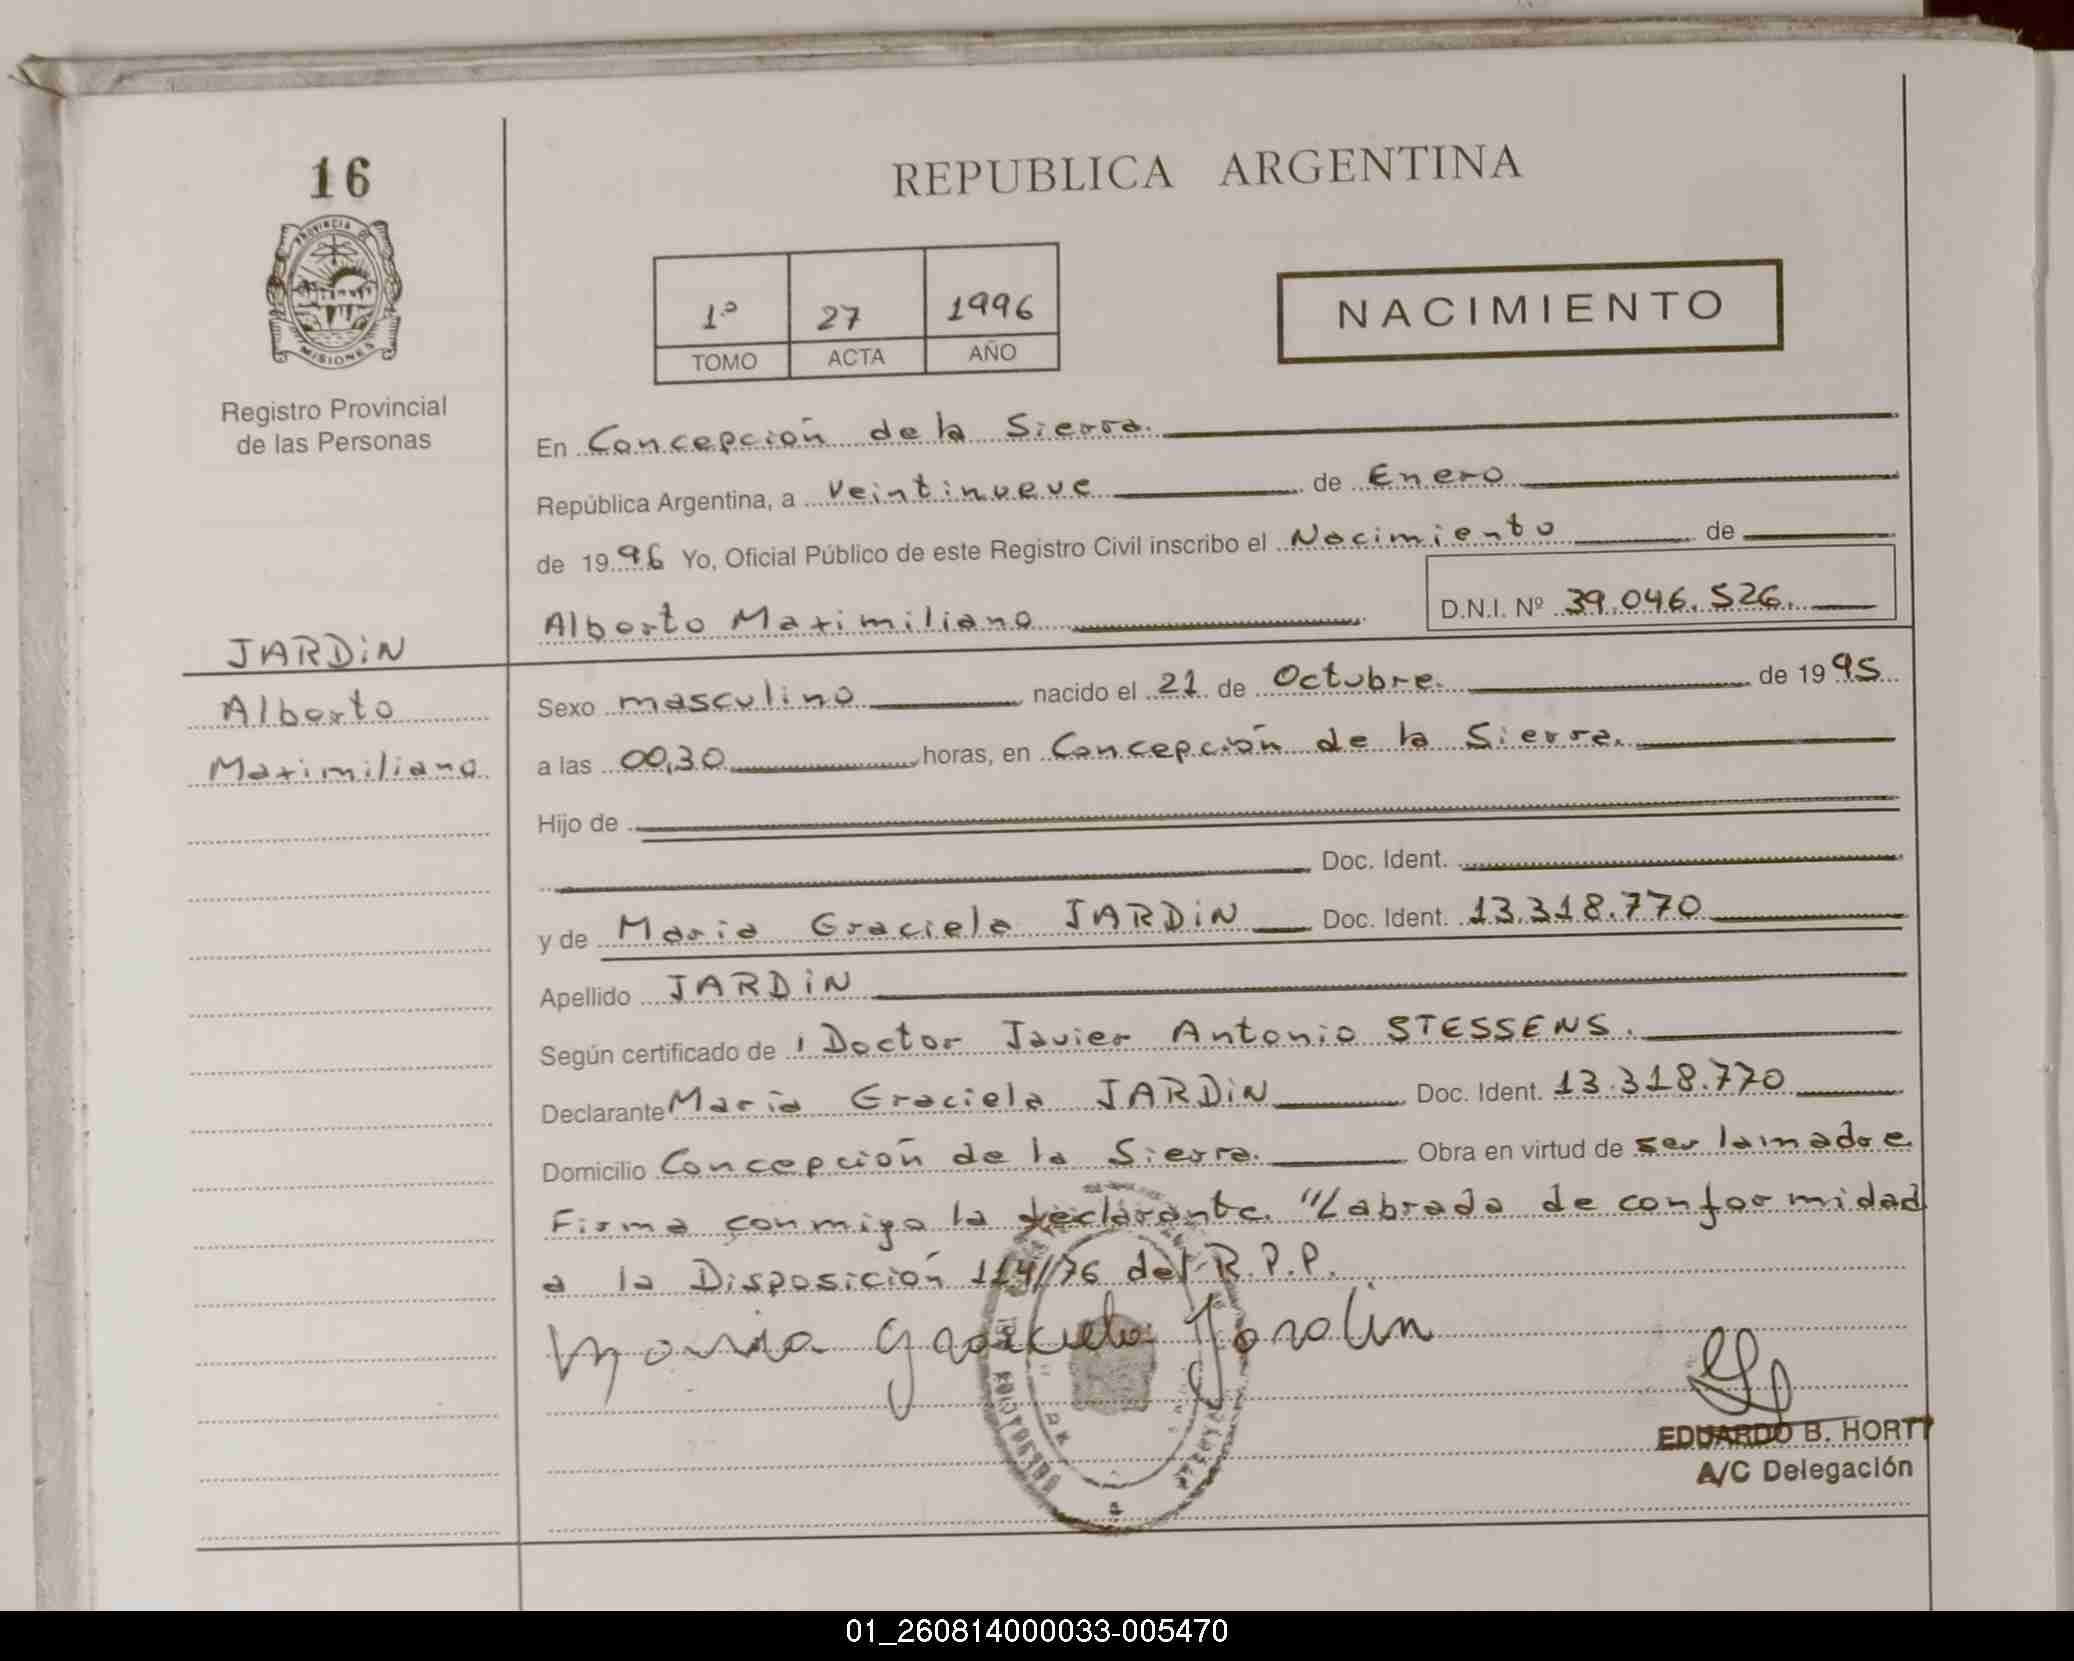 16
PROVINCIA DE
MISIONES
Registro Provincial
de las Personas
JARDiN
Alberto
Maximiliano
REPUBLICA ARGENTINA
1º 27 1996
TOMO ACTA AÑO
NACIMIENTO
En Concepción de la Sierra.
República Argentina, a Veintinueve de Enero
de 1996 Yo, Oficial Público de este Registro Civil inscribo el Nacimiento de
Alberto Maximiliano D.N.I. Nº 39.046.526.
Sexo masculino nacido el 21 de Octubre. de 1995
a las 00,30 horas, en Concepción de la Sierra.
Hijo de
Doc. Ident.
y de Maria Graciela JARDiN Doc. Ident. 13.318.770
Apellido JARDiN
Según certificado de Doctor Javier Antonio STESSENS.
Declarante Maria Graciela JARDiN Doc. Ident. 13.318.770
Domicilio Concepción de la Sierra. Obra en virtud de ser la madre
Firma conmigo la declarante. "Labrada de conformidad
a la Disposición 114/76 del R.P.P.
Maria Graciela Jardin
EDUARDO B. HORTT
A/C Delegación
01_260814000033-005470